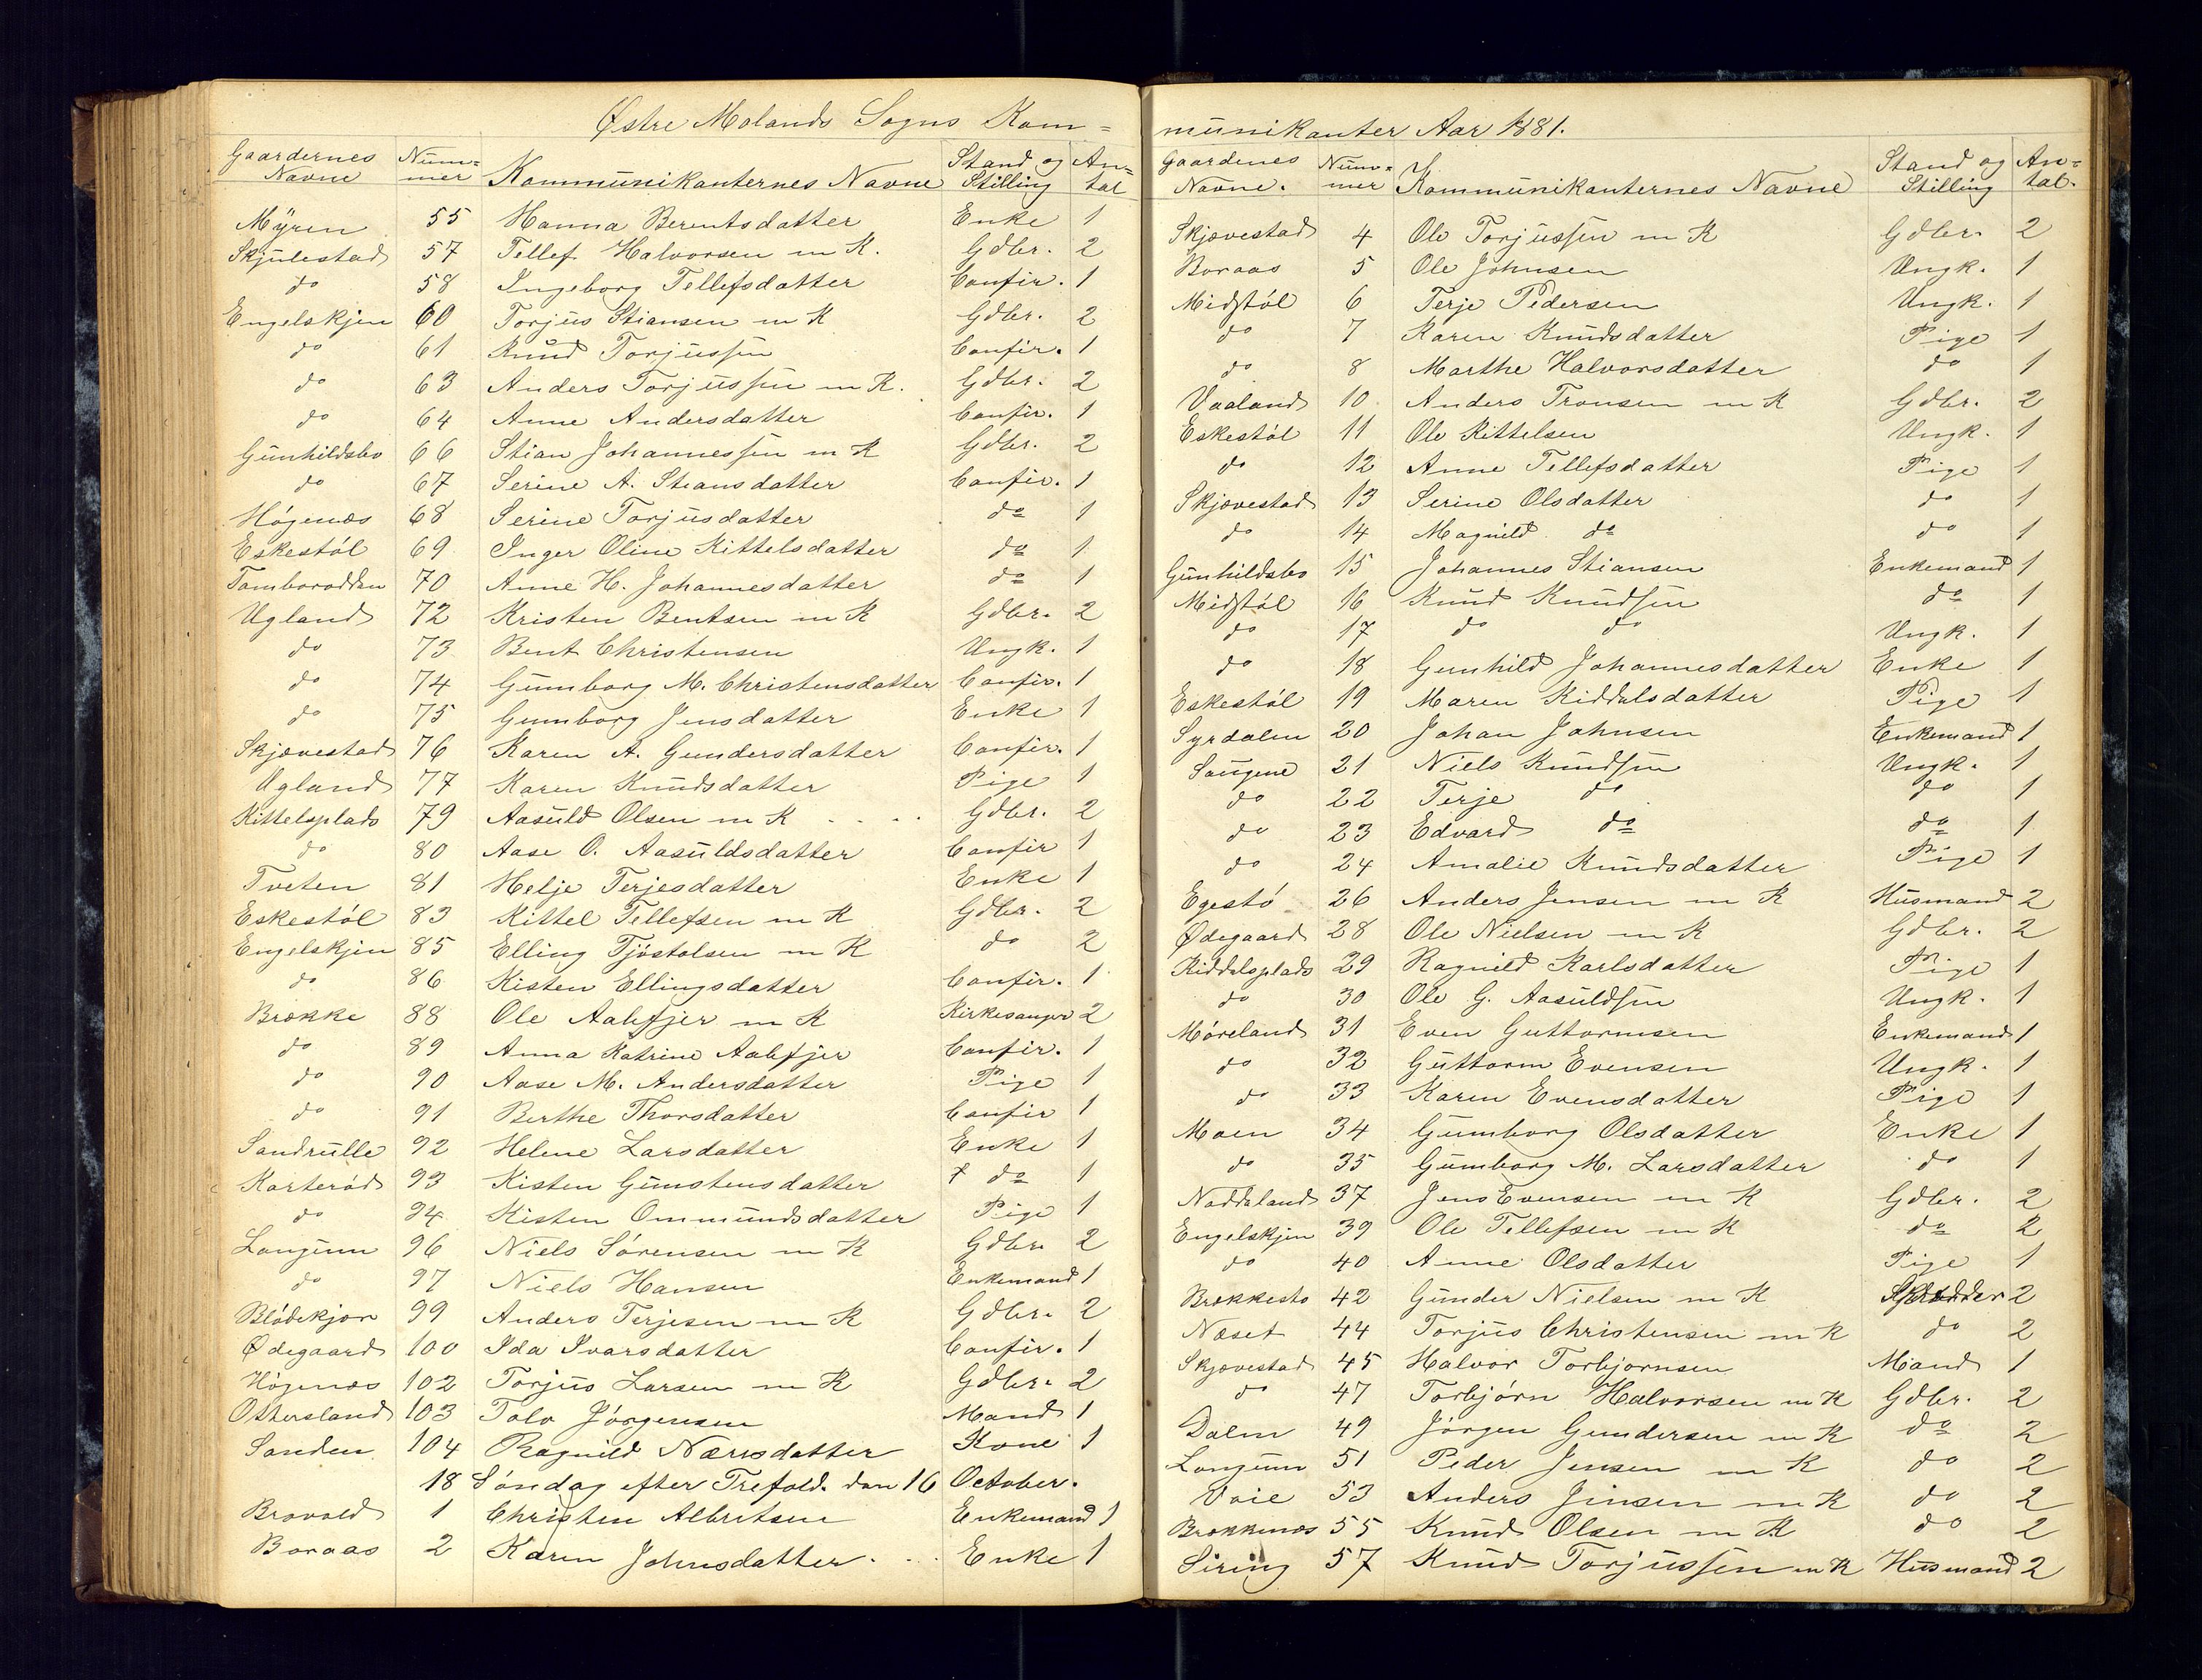 Østre Molands Sogns Kom=
Gaardernes Navne Num=mer Kommunikanternes Navne Stand og Stilling An=tal
Myren 55 Hanna Berentsdatter Enke 1
Skjulestad 57 Tellef Halvorsen m K. Gdbr. 2
do 58 Ingeborg Tellefsdatter Confir. 1
Engelskjen 60 Torjus Stiansen m K Gdbr. 2
do 61 Knud Torjussen Confir. 1
do 63 Anders Torjussen m K. Gdbr. 2
do 64 Anne Andersdatter Confir. 1
Gunhildsbo 66 Stian Johannessen m K Gdbr. 2
do 67 Serine A. Steansdatter Confir. 1
Högenæs 68 Serine Torjusdatter do 1
Eskestöl 69 Inger Oline Kittelsdatter do 1
Tamborodden 70 Anne H. Johannesdatter do 1
Ugland 72 Kristen Bentsen m K Gdbr. 2
do 73 Bent Christensen Ungk. 1
do 74 Gumborg M. Christensdatter Confir. 1
do 75 Gumborg Jensdatter Enke 1
Skjævestad 76 Karen A. Gundersdatter Confir. 1
Ugland 77 Karen Knudsdatter Pige 1
Kittelsplads 79 Aasuld Olsen m K Gdbr. 2
do 80 Aase O. Aasuldsdatter Confir 1
Tveten 81 Helje Terjesdatter Enke 1
Eskestöl 83 Kittel Tellefsen m K Gdbr. 2
Engelskjen 85 Elling Tjöstolsen m K do 2
do 86 Kisten Ellingsdatter Confir. 1
Brække 88 Ole Aabefjer m K Kirkesanger 2
do 89 Anna Katrine Aabefjer Confir. 1
do 90 Aase M. Andersdatter Pige 1
do 91 Berthe Thorsdatter Confir 1
Sandrulle 92 Helene Larsdatter Enke 1
Karteröd 93 Kisten Gunstensdatter do 1
do 94 Kisten Ommundsdatter Pige 1
Longum 96 Niels Sörensen m K Gdbr 2
do 97 Niels Hansen Enkemand 1
Blödekjær 99 Anders Terjesen m K Gdbr. 2
Ødegaard 100 Ida Ivarsdatter Confir. 1
Högenæs 102 Torjus Larsen m K Gdbr. 2
Ottersland 103 Tolv Jörgensen Mand 1
Sanden 104 Ragnild Nærisdatter Kone 1
18 Söndag efter Trefold. den 16 October.
Bravold 1 Christen Albretsen Enkemand 1
Boraas 2 Karen Johnsdatter. Enke 1
munikanter Aar 1881.
Gaardenes Navne. Num=mer Kommunikanternes Navne Stand og Stilling An=tal.
Skjævestad 4 Ole Torjussen m K Gdbr. 2
Boraas 5 Ole Johnsen Ungk. 1
Midstöl 6 Terje Pedersen Ungk. 1
do 7 Karen Knudsdatter Pige 1
do 8 Marthe Halvorsdatter do 1
Vaaland 10 Anders Tronsen m K Gdbr. 2
Eskestöl 11 Ole Kittelsen Ungk. 1
do 12 Anne Tellefsdatter Pige 1
Skjævestad 13 Serine Olsdatter do 1
do 14 Magnild do do 1
Gunhildsbo 15 Johannes Stiansen Enkemand 1
Midstöl 16 Knud Knudsen do 1
do 17 do do Ungk. 1
do 18 Gunhild Johannesdatter Enke 1
Eskestöl 19 Maren Kiddelsdatter Pige 1
Syrdalen 20 Johan Johnsen Enkemand 1
Saugene 21 Niels Knudsen Ungk. 1
do 22 Terje do do 1
do 23 Edvard do do 1
do 24 Amalie Knudsdatter Pige 1
Egestö 26 Anders Jensen m K Husmand 2
Ødegaard 28 Ole Nielsen m K Gdbr. 2
Kiddelsplads 29 Ragnild Karlsdatter Pige 1
do 30 Ole G. Aasuldsen Ungk. 1
Möreland 31 Even Guttormsen Enkemand 1
do 32 Guttorm Evensen Ungk. 1
do 33 Karen Evensdatter Pige 1
Moen 34 Gumborg Olsdatter Enke 1
do 35 Gumborg M. Larsdatter do 1
Naddeland 37 Jens Evensen m K Gdbr. 2
Engelskjen 39 Ole Tellefsen m K do 2
do 40 Anne Olsdatter Pige 1
Brækkestö 42 Gunder Nielsen m K Skrædder 2
Næset 44 Torjus Christensen m K do 2
Skjævestad 45 Halvor Torbjornsen Mand 1
do 47 Torbjörn Halvorsen m K Gdbr. 2
Dalen 49 Jörgen Gundersen m K do 2
Longum 51 Peder Jensen m K do 2
Vaie 53 Anders Jensen m K do 2
Brækkenæs 55 Knud Olsen m K do 2
Siring 57 Knud Torjussen m K Husmand 2